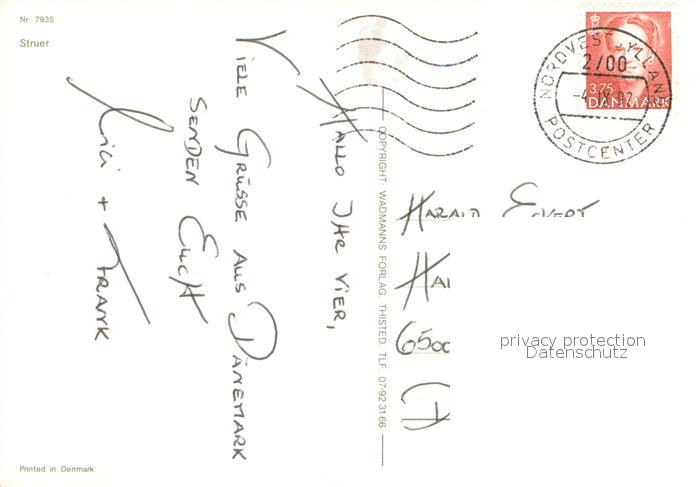 Nr. 7935
Struer
HALLO IHR VIER,
VIELE GRÜSSE AUS DÄNEMARK
SENDEN EUCH
+ FRANK
COPYRIGHT: WADMANNS FORLAG THISTED. TLF. 07-92 31 66
NORDVESTJYLLAND
2/00
POSTCENTER
3.75
DANMARK
HARALD
6500
privacy protection
Datenschutz
Printed in Denmark